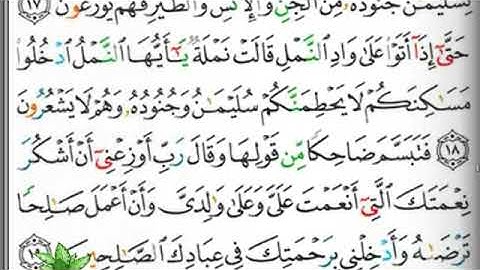 لِسُلَيْمَـٰنَ جُنُودُهُۥ مِنَ ٱلْجِنِّ وَٱلْإِنسِ وَٱلطَّيْرِ فَهُمْ يُوزَعُونَ ١٧
حَتَّىٰٓ إِذَآ أَتَوْا۟ عَلَىٰ وَادِ ٱلنَّمْلِ قَالَتْ نَمْلَةٌ يَـٰٓأَيُّهَا ٱلنَّمْلُ ٱدْخُلُوا۟
مَسَـٰكِنَكُمْ لَا يَحْطِمَنَّكُمْ سُلَيْمَـٰنُ وَجُنُودُهُۥ وَهُمْ لَا يَشْعُرُونَ
١٨ فَتَبَسَّمَ ضَاحِكًا مِّن قَوْلِهَا وَقَالَ رَبِّ أَوْزِعْنِىٓ أَنْ أَشْكُرَ
نِعْمَتَكَ ٱلَّتِىٓ أَنْعَمْتَ عَلَىَّ وَعَلَىٰ وَٰلِدَىَّ وَأَنْ أَعْمَلَ صَـٰلِحًا
تَرْضَىٰهُ وَأَدْخِلْنِى بِرَحْمَتِكَ فِى عِبَادِكَ ٱلصَّـٰلِحِينَ ١٩